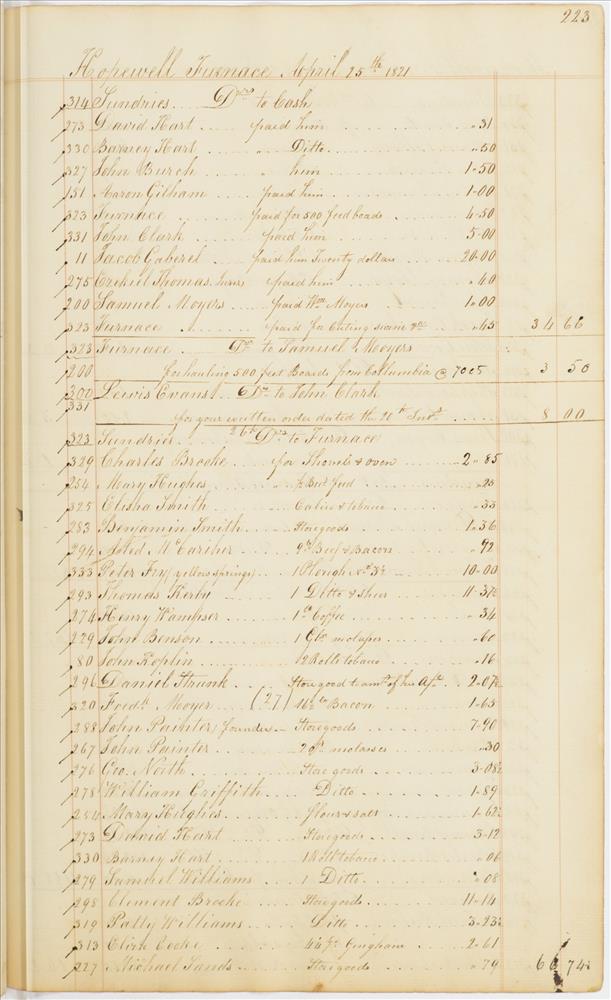 223
Hopewell Furnace April 25th 1821
314 Sundries Drs to Cash
273 David Hart paid him „31
330 Barney Hart „ Ditto „50
327 John Burch „ him 1„50
151 Aaron Gilham paid him 1„00
323 Furnace paid for 500 feed boads 4„50
331 John Clark paid him 5„00
11 Jacob Gaberel paid him Twenty dollars 20„00
275 Ezekiel Thomas, paid him „40
200 Samuel Moyers paid Wm Moyers 1„00
323 Furnace paid for 45 34 66
323 Furnace Dr to Samuel Moyers
200 for hauling 500 feet Boards from Collumbia @ 70 cs 3 50
300 Lewis Evans Dr to John Clark
331
for your written order dated the 20th Inst 8 00
26th
323 Sundries Drs to Furnace
329 Charles Brooke for Shovels & oven 2„85
254 Mary Hughes feed „25
325 Elisha Smith & tobacco „33
283 Benjamin Smith Storegoods 1„36
294 McCariher Beef & Bacon „92
333 Peter Fry (yellow springs) 1 Plough No 3 10„00
293 Thomas Kerby 1 Ditto & shear 11„37½
274 Henry Wampser 1 lb Coffee „34
229 John Benson 1 Qt molasses „60
80 John Koplin 2 Rolls tobacco „16
296 Daniel Strunk Store good to amt of his 2„07½
320 Fredk Moyer (27) 16½ lb Bacon 1„65
288 John Painter (founder) Storegoods 7„90
267 John Painter 2 qts molasses „30
276 Geo. North Storegoods 3„08½
278 William Griffith Ditto 1„89
254 Mary Hughes flour & salt 1„62½
273 David Hart Storegoods 3„12
330 Barney Hart 1 Roll tobacco „06
279 Samuel Williams 1 Ditto „08
298 Clement Brooke Storegoods 11„14
319 Patty Williams Ditto 3„23½
313 Clerk Cooke yds Gingham 2„61
227 Michael Sands Storegoods „79 66 74½